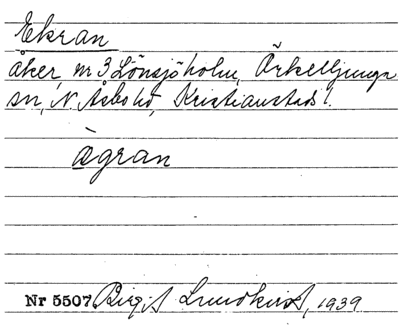 Ekran
åker, nr 3 Lönsjöholm, Örkelljunga
sn, N. Åsbo hd, Kristianstads l.
ägran
Nr 5507. Birgit Lundkvist, 1939